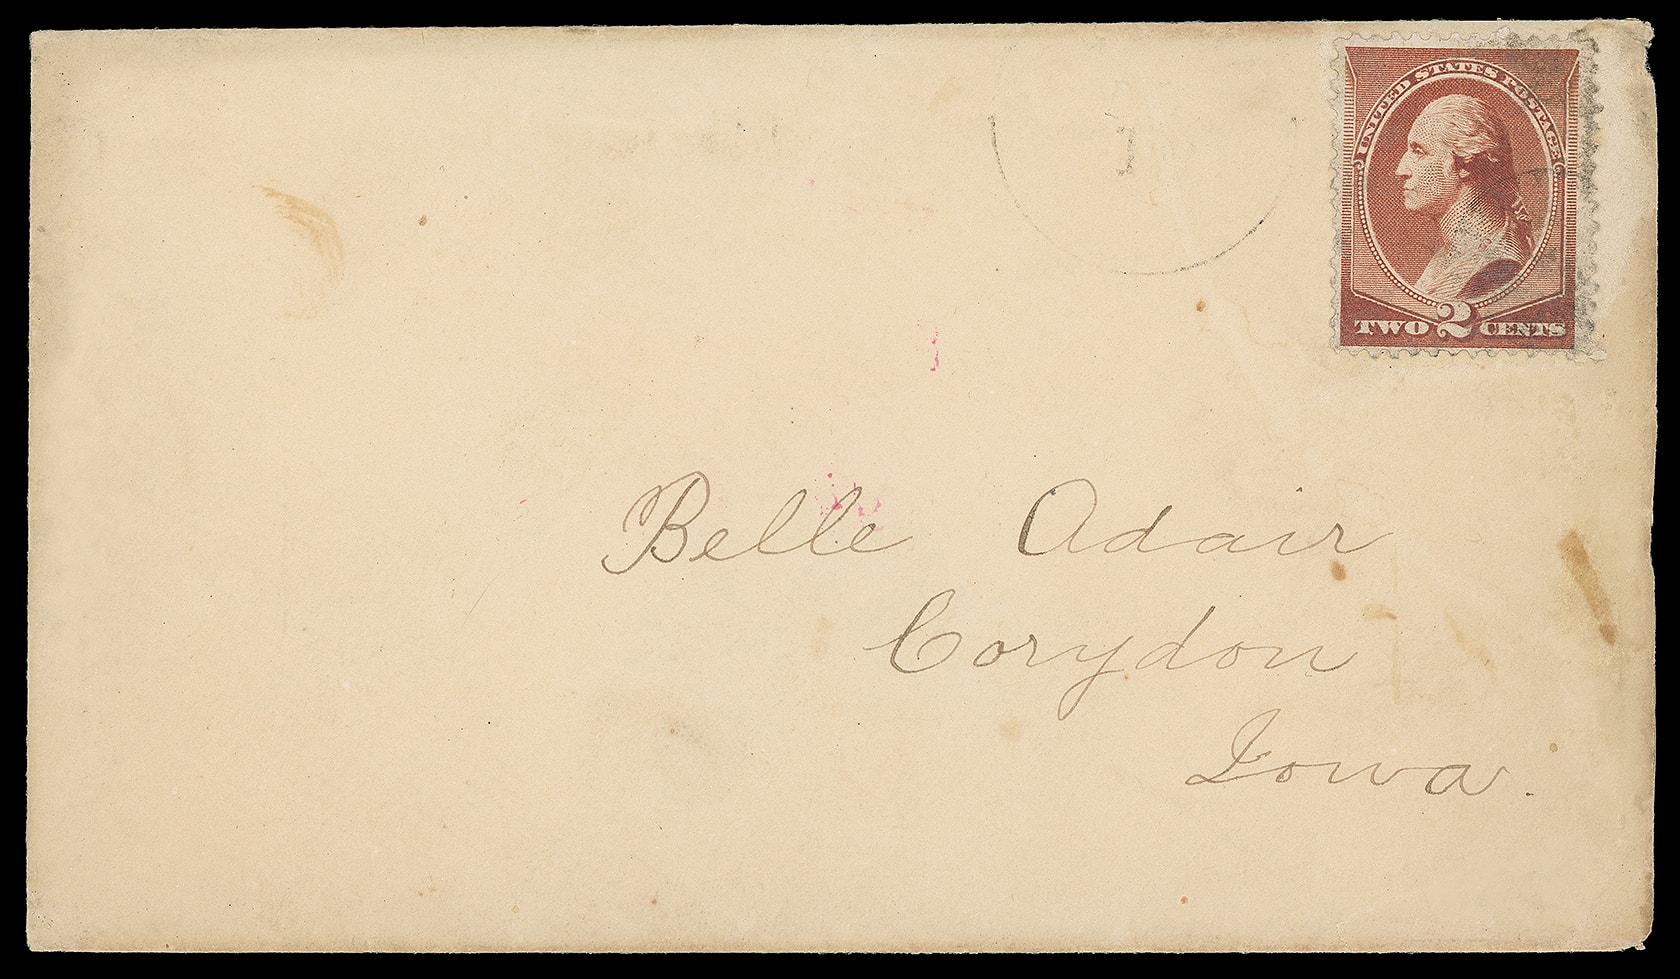 UNITED STATES POSTAGE
TWO 2 CENTS
Belle Adair
Corydon
Iowa.